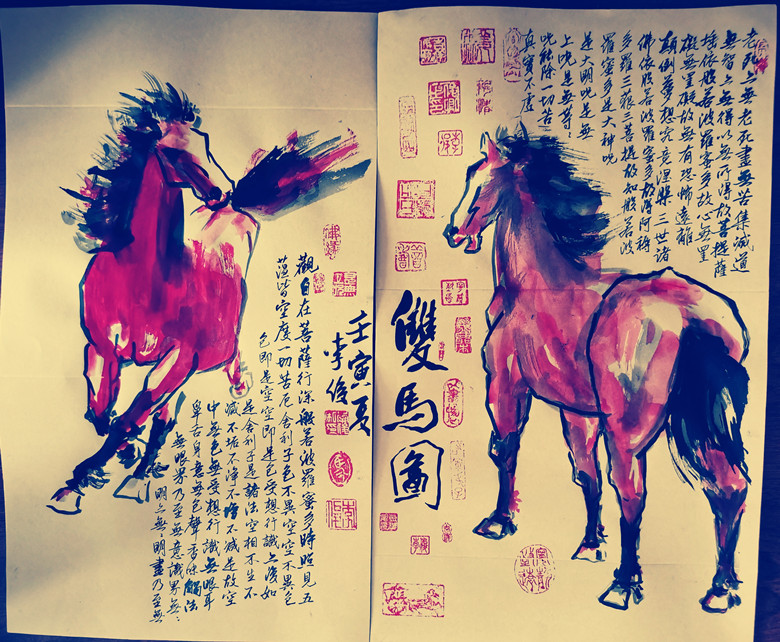 雙馬圖
壬寅夏
李俊
觀自在菩薩行深般若波羅蜜多時照見五
蘊皆空度一切苦厄舍利子色不異空空不異色
色即是空空即是色受想行識亦復如
是舍利子是諸法空相不生不
滅不垢不净不增不減是故空
中無色無受想行識無眼耳
鼻舌身意無色聲香味觸法
無眼界乃至無意識界無：
明亦無：明盡乃至無
老死亦無老死盡無苦集滅道
無智亦無得以無所得故菩提薩
埵依般若波羅蜜多故心無罣
礙無罣礙故無有恐怖遠離
顛倒夢想究竟涅槃三世諸
佛依般若波羅蜜多故得阿耨
多羅三藐三菩提故知般若波
羅蜜多是大神咒
是大明咒是無
上咒是無等：
咒能除一切苦
真實不虛